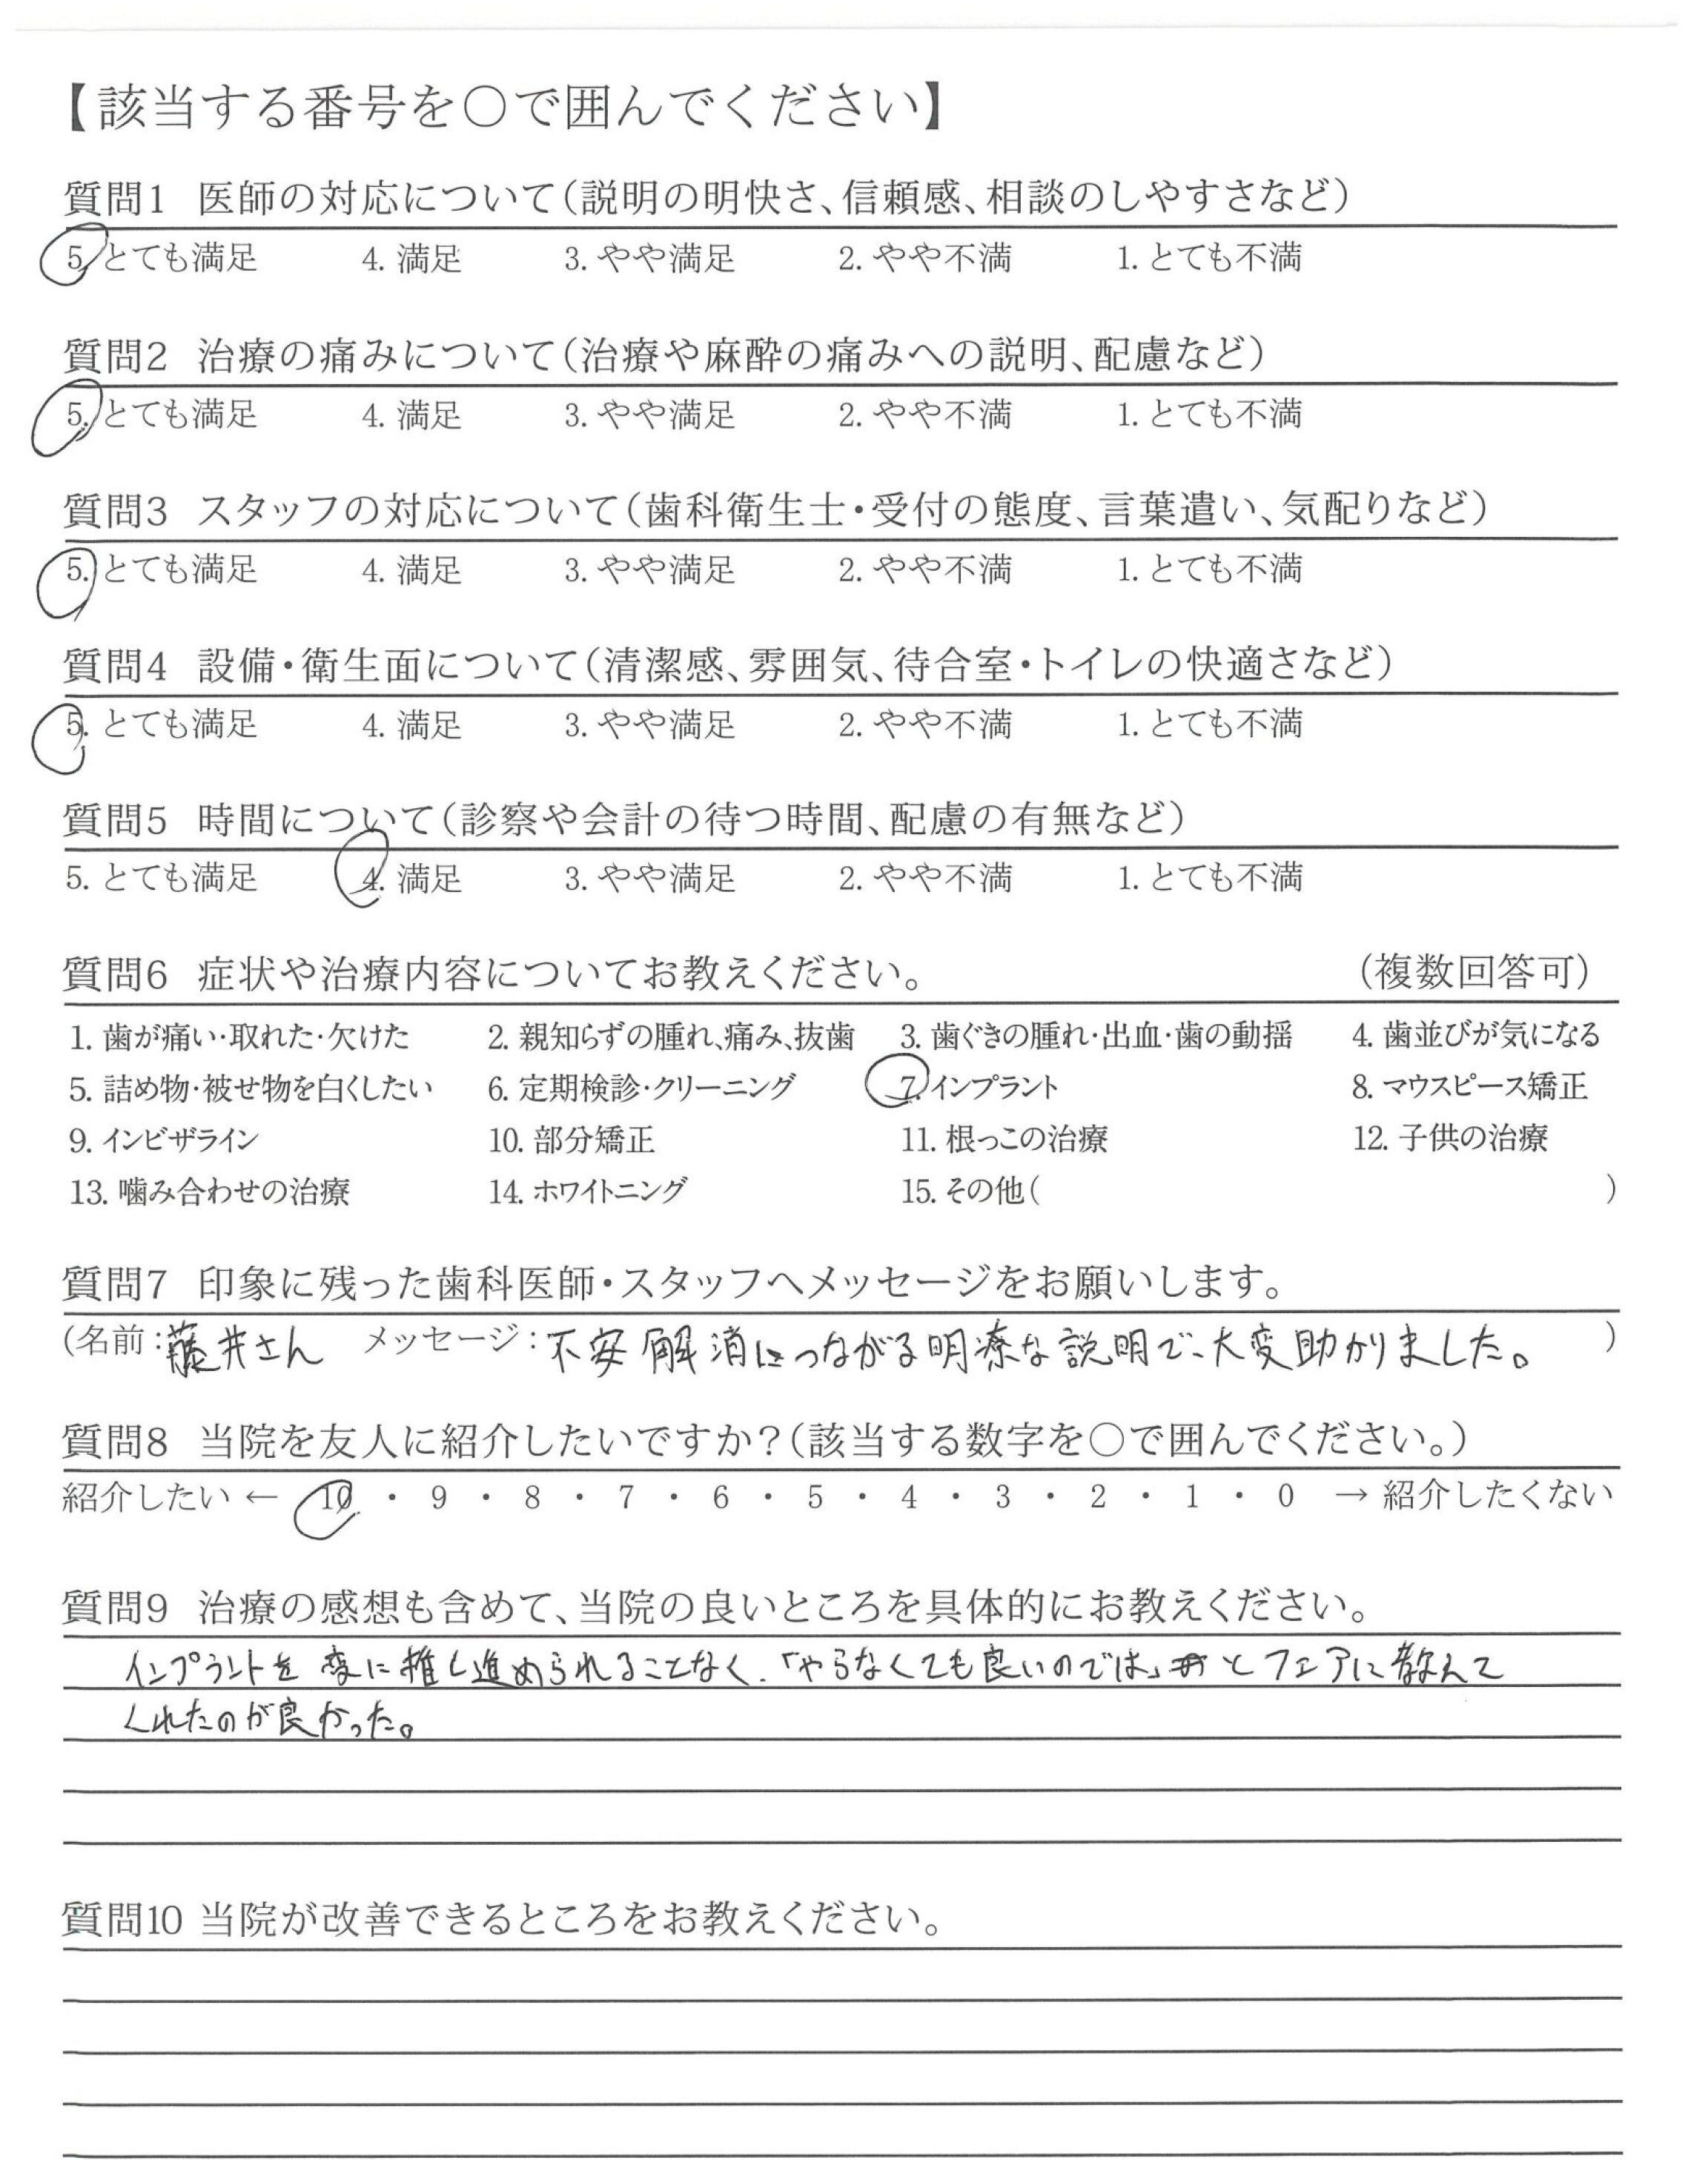 【該当する番号を○で囲んでください】
質問1 医師の対応について(説明の明快さ、信頼感、相談のしやすさなど)
5. とても満足 4. 満足 3. やや満足 2. やや不満 1. とても不満
質問2 治療の痛みについて(治療や麻酔の痛みへの説明、配慮など)
5. とても満足 4. 満足 3. やや満足 2. やや不満 1. とても不満
質問3 スタッフの対応について(歯科衛生士・受付の態度、言葉遣い、気配りなど)
5. とても満足 4. 満足 3. やや満足 2. やや不満 1. とても不満
質問4 設備・衛生面について(清潔感、雰囲気、待合室・トイレの快適さなど)
5. とても満足 4. 満足 3. やや満足 2. やや不満 1. とても不満
質問5 時間について(診察や会計の待つ時間、配慮の有無など)
5. とても満足 4. 満足 3. やや満足 2. やや不満 1. とても不満
質問6 症状や治療内容についてお教えください。 (複数回答可)
1. 歯が痛い・取れた・欠けた 2. 親知らずの腫れ、痛み、抜歯 3. 歯ぐきの腫れ・出血・歯の動揺 4. 歯並びが気になる
5. 詰め物・被せ物を白くしたい 6. 定期検診・クリーニング 7. インプラント 8. マウスピース矯正
9. インビザライン 10. 部分矯正 11. 根っこの治療 12. 子供の治療
13. 噛み合わせの治療 14. ホワイトニング 15. その他( )
質問7 印象に残った歯科医師・スタッフへメッセージをお願いします。
(名前:藤井さん メッセージ:不安解消につながる明瞭な説明で、大変助かりました。 )
質問8 当院を友人に紹介したいですか?(該当する数字を○で囲んでください。)
紹介したい ← 10 ・ 9 ・ 8 ・ 7 ・ 6 ・ 5 ・ 4 ・ 3 ・ 2 ・ 1 ・ 0 → 紹介したくない
質問9 治療の感想も含めて、当院の良いところを具体的にお教えください。
インプラントを変に推し進められることなく、「やらなくても良いのでは」とフェアに教えて
くれたのが良かった。
質問10 当院が改善できるところをお教えください。